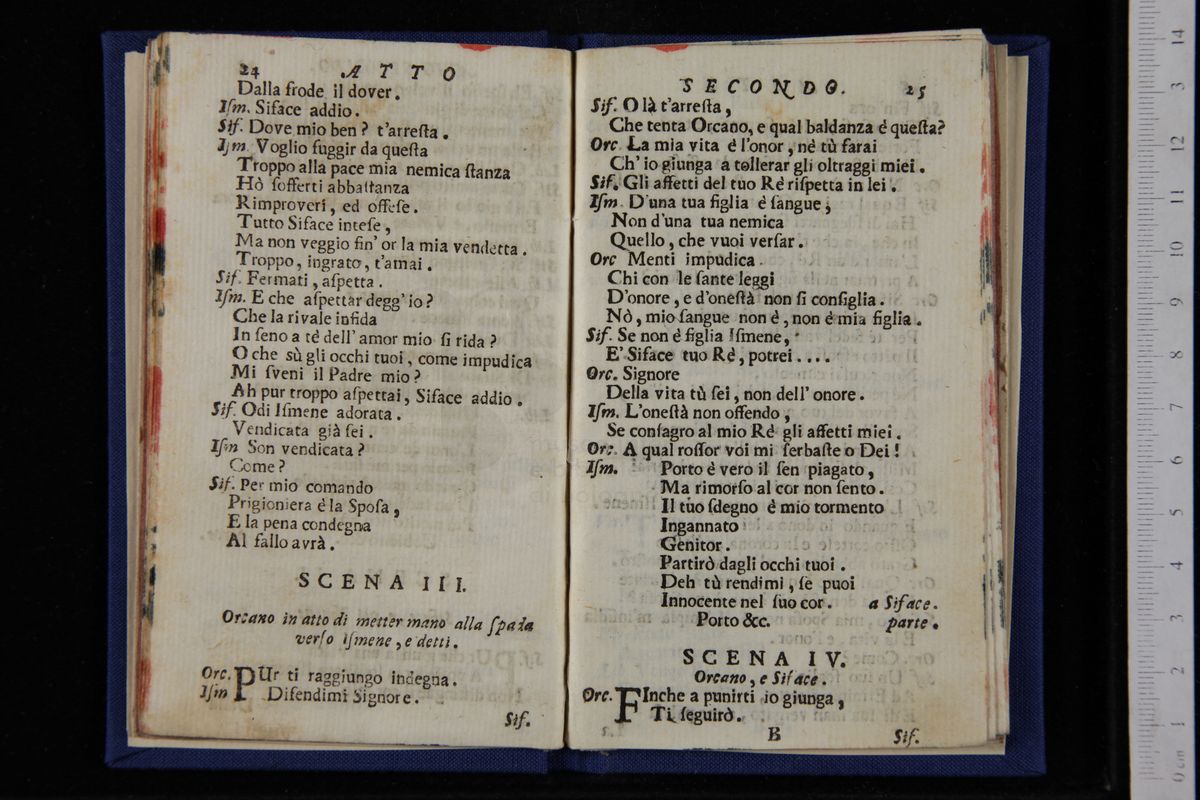 24 ATTO
Dalla frode il dover.
Iſm. Siface addio.
Sif. Dove mio ben? t'arreſta.
Iſm. Voglio fuggir da queſta
Troppo alla pace mia nemica ſtanza
Hò ſofferti abbaſtanza
Rimproveri, ed offeſe.
Tutto Siface inteſe,
Ma non veggio fin' or la mia vendetta.
Troppo, ingrato, t'amai.
Sif. Fermati, aſpetta.
Iſm. E che aſpettar degg' io?
Che la rivale infida
In ſeno a tè dell' amor mio ſi rida?
O che sù gli occhi tuoi, come impudica
Mi ſveni il Padre mio?
Ah pur troppo aſpettai, Siface addio.
Sif. Odi Iſmene adorata.
Vendicata già ſei.
Iſm Son vendicata?
Come?
Sif. Per mio comando
Prigioniera è la Spoſa,
E la pena condegna
Al fallo avrà.
SCENA III.
Orcano in atto di metter mano alla ſpada
verſo Iſmene, e detti.
Orc. PUr ti raggiungo indegna.
Iſm Difendimi Signore.
Sif.
SECONDO. 25
Sif. O là t'arreſta,
Che tenta Orcano, e qual baldanza è queſta?
Orc La mia vita è l'onor, nè tù farai
Ch' io giunga a tollerar gli oltraggi miei.
Sif. Gli affetti del tuo Rè riſpetta in lei.
Iſm. D'una tua figlia è ſangue,
Non d'una tua nemica
Quello, che vuoi verſar.
Orc Menti impudica.
Chi con le ſante leggi
D'onore, e d'oneſtà non ſi conſiglia.
Nò, mio ſangue non è, non è mia figlia.
Sif. Se non è figlia Iſmene,
E' Siface tuo Rè, potrei....
Orc. Signore
Della vita tù ſei, non dell' onore.
Iſm. L'oneſtà non offendo,
Se conſagro al mio Rè gli affetti miei.
Orc. A qual roſſor voi mi ſerbaſte o Dei!
Iſm. Porto è vero il ſen piagato,
Ma rimorſo al cor non ſento.
Il tuo ſdegno è mio tormento
Ingannato
Genitor.
Partirò dagli occhi tuoi.
Deh tù rendimi, ſe puoi
Innocente nel ſuo cor. a Siface.
Porto &c. parte.
SCENA IV.
Orcano, e Siface.
Orc. FInche a punirti io giunga,
Ti ſeguirò.
B Sif.
0 cm 1 2 3 4 5 6 7 8 9 10 11 12 13 14